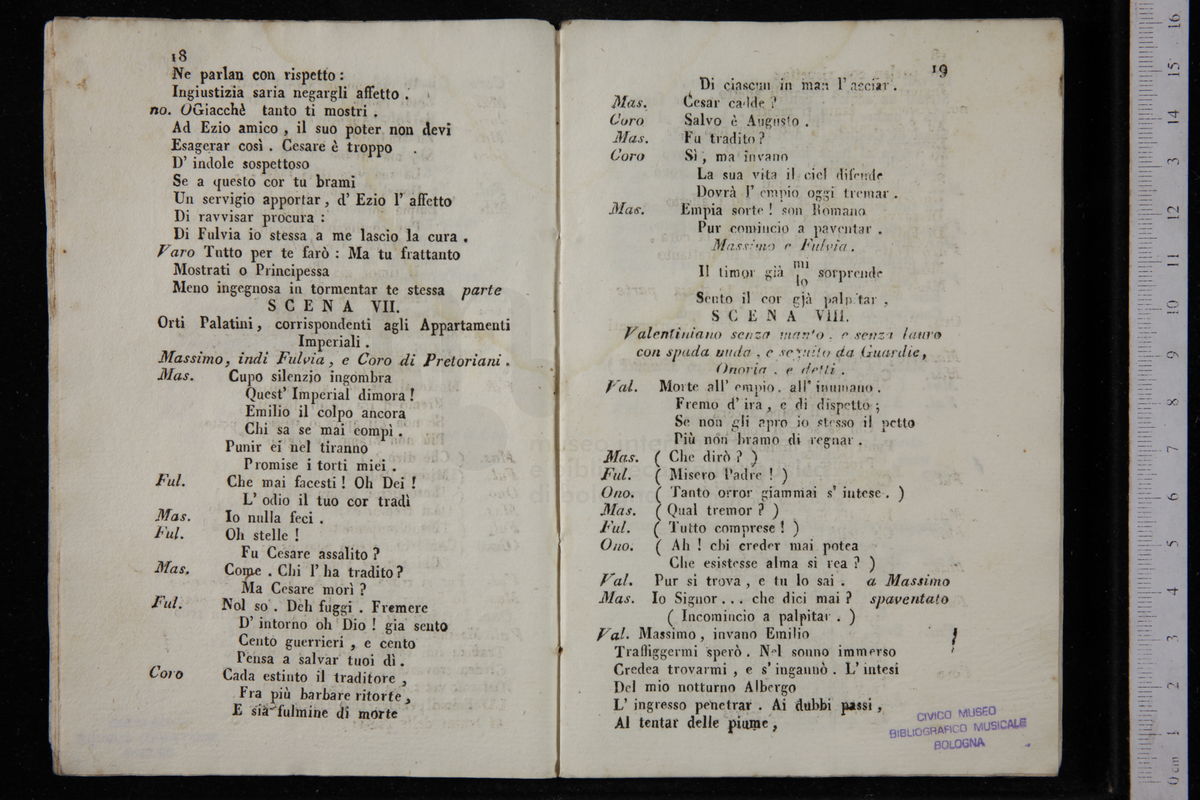 18
Ne parlan con rispetto :
Ingiustizia saria negargli affetto .
no. OGiacchè tanto ti mostri .
Ad Ezio amico , il suo poter non devi
Esagerar così . Cesare è troppo
D' indole sospettoso
Se a questo cor tu brami
Un servigio apportar , d' Ezio l' affetto
Di ravvisar procura :
Di Fulvia io stessa a me lascio la cura .
Varo Tutto per te farò : Ma tu frattanto
Mostrati o Principessa
Meno ingegnosa in tormentar te stessa parte
SCENA VII.
Orti Palatini , corrispondenti agli Appartamenti
Imperiali .
Massimo, indi Fulvia, e Coro di Pretoriani .
Mas. Cupo silenzio ingombra
Quest' Imperial dimora !
Emilio il colpo ancora
Chi sa se mai compì .
Punir ei nel tiranno
Promise i torti miei .
Ful. Che mai facesti ! Oh Dei !
L' odio il tuo cor tradì
Mas. Io nulla feci .
Ful. Oh stelle !
Fu Cesare assalito ?
Mas. Come . Chi l' ha tradito ?
Ma Cesare morì ?
Ful. Nol so . Deh fuggi . Fremere
D' intorno oh Dio ! gia sento
Cento guerrieri , e cento
Pensa a salvar tuoi dì .
Coro Cada estinto il traditore ,
Fra più barbare ritorte ,
E sia fulmine di morte
19
Di ciascun in man l' acciar .
Mas. Cesar cadde ?
Coro Salvo è Augusto .
Mas. Fu tradito ?
Coro Sì , ma invano
La sua vita il ciel difende
Dovrà l' empio oggi tremar .
Mas. Empia sorte ! son Romano
Pur comincio a paventar .
Massimo e Fulvia .
mi
Il timor già sorprende
lo
Sento il cor già palpitar ,
SCENA VIII.
Valentiniano senza manto , e senza lauro
con spada nuda , e seguito da Guardie,
Onoria , e detti .
Val. Morte all' empio , all' inumano .
Fremo d' ira , e di dispetto ;
Se non gli apro io stesso il petto
Più non bramo di regnar .
Mas. ( Che dirò ? )
Ful. ( Misero Padre ! )
Ono. ( Tanto orror giammai s' intese . )
Mas. ( Qual tremor ? )
Ful. ( Tutto comprese ! )
Ono. ( Ah ! chi creder mai potea
Che esistesse alma si rea ? )
Val. Pur si trova , e tu lo sai . a Massimo
Mas. Io Signor . . . che dici mai ? spaventato
( Incomincio a palpitar . )
Val. Massimo , invano Emilio
Trafiggermi sperò . Nel sonno immerso
Credea trovarmi , e s' ingannò . L' intesi
Del mio notturno Albergo
L' ingresso penetrar . Ai dubbi passi ,
Al tentar delle piume ,
CIVICO MUSEO
BIBLIOGRAFICO MUSICALE
BOLOGNA